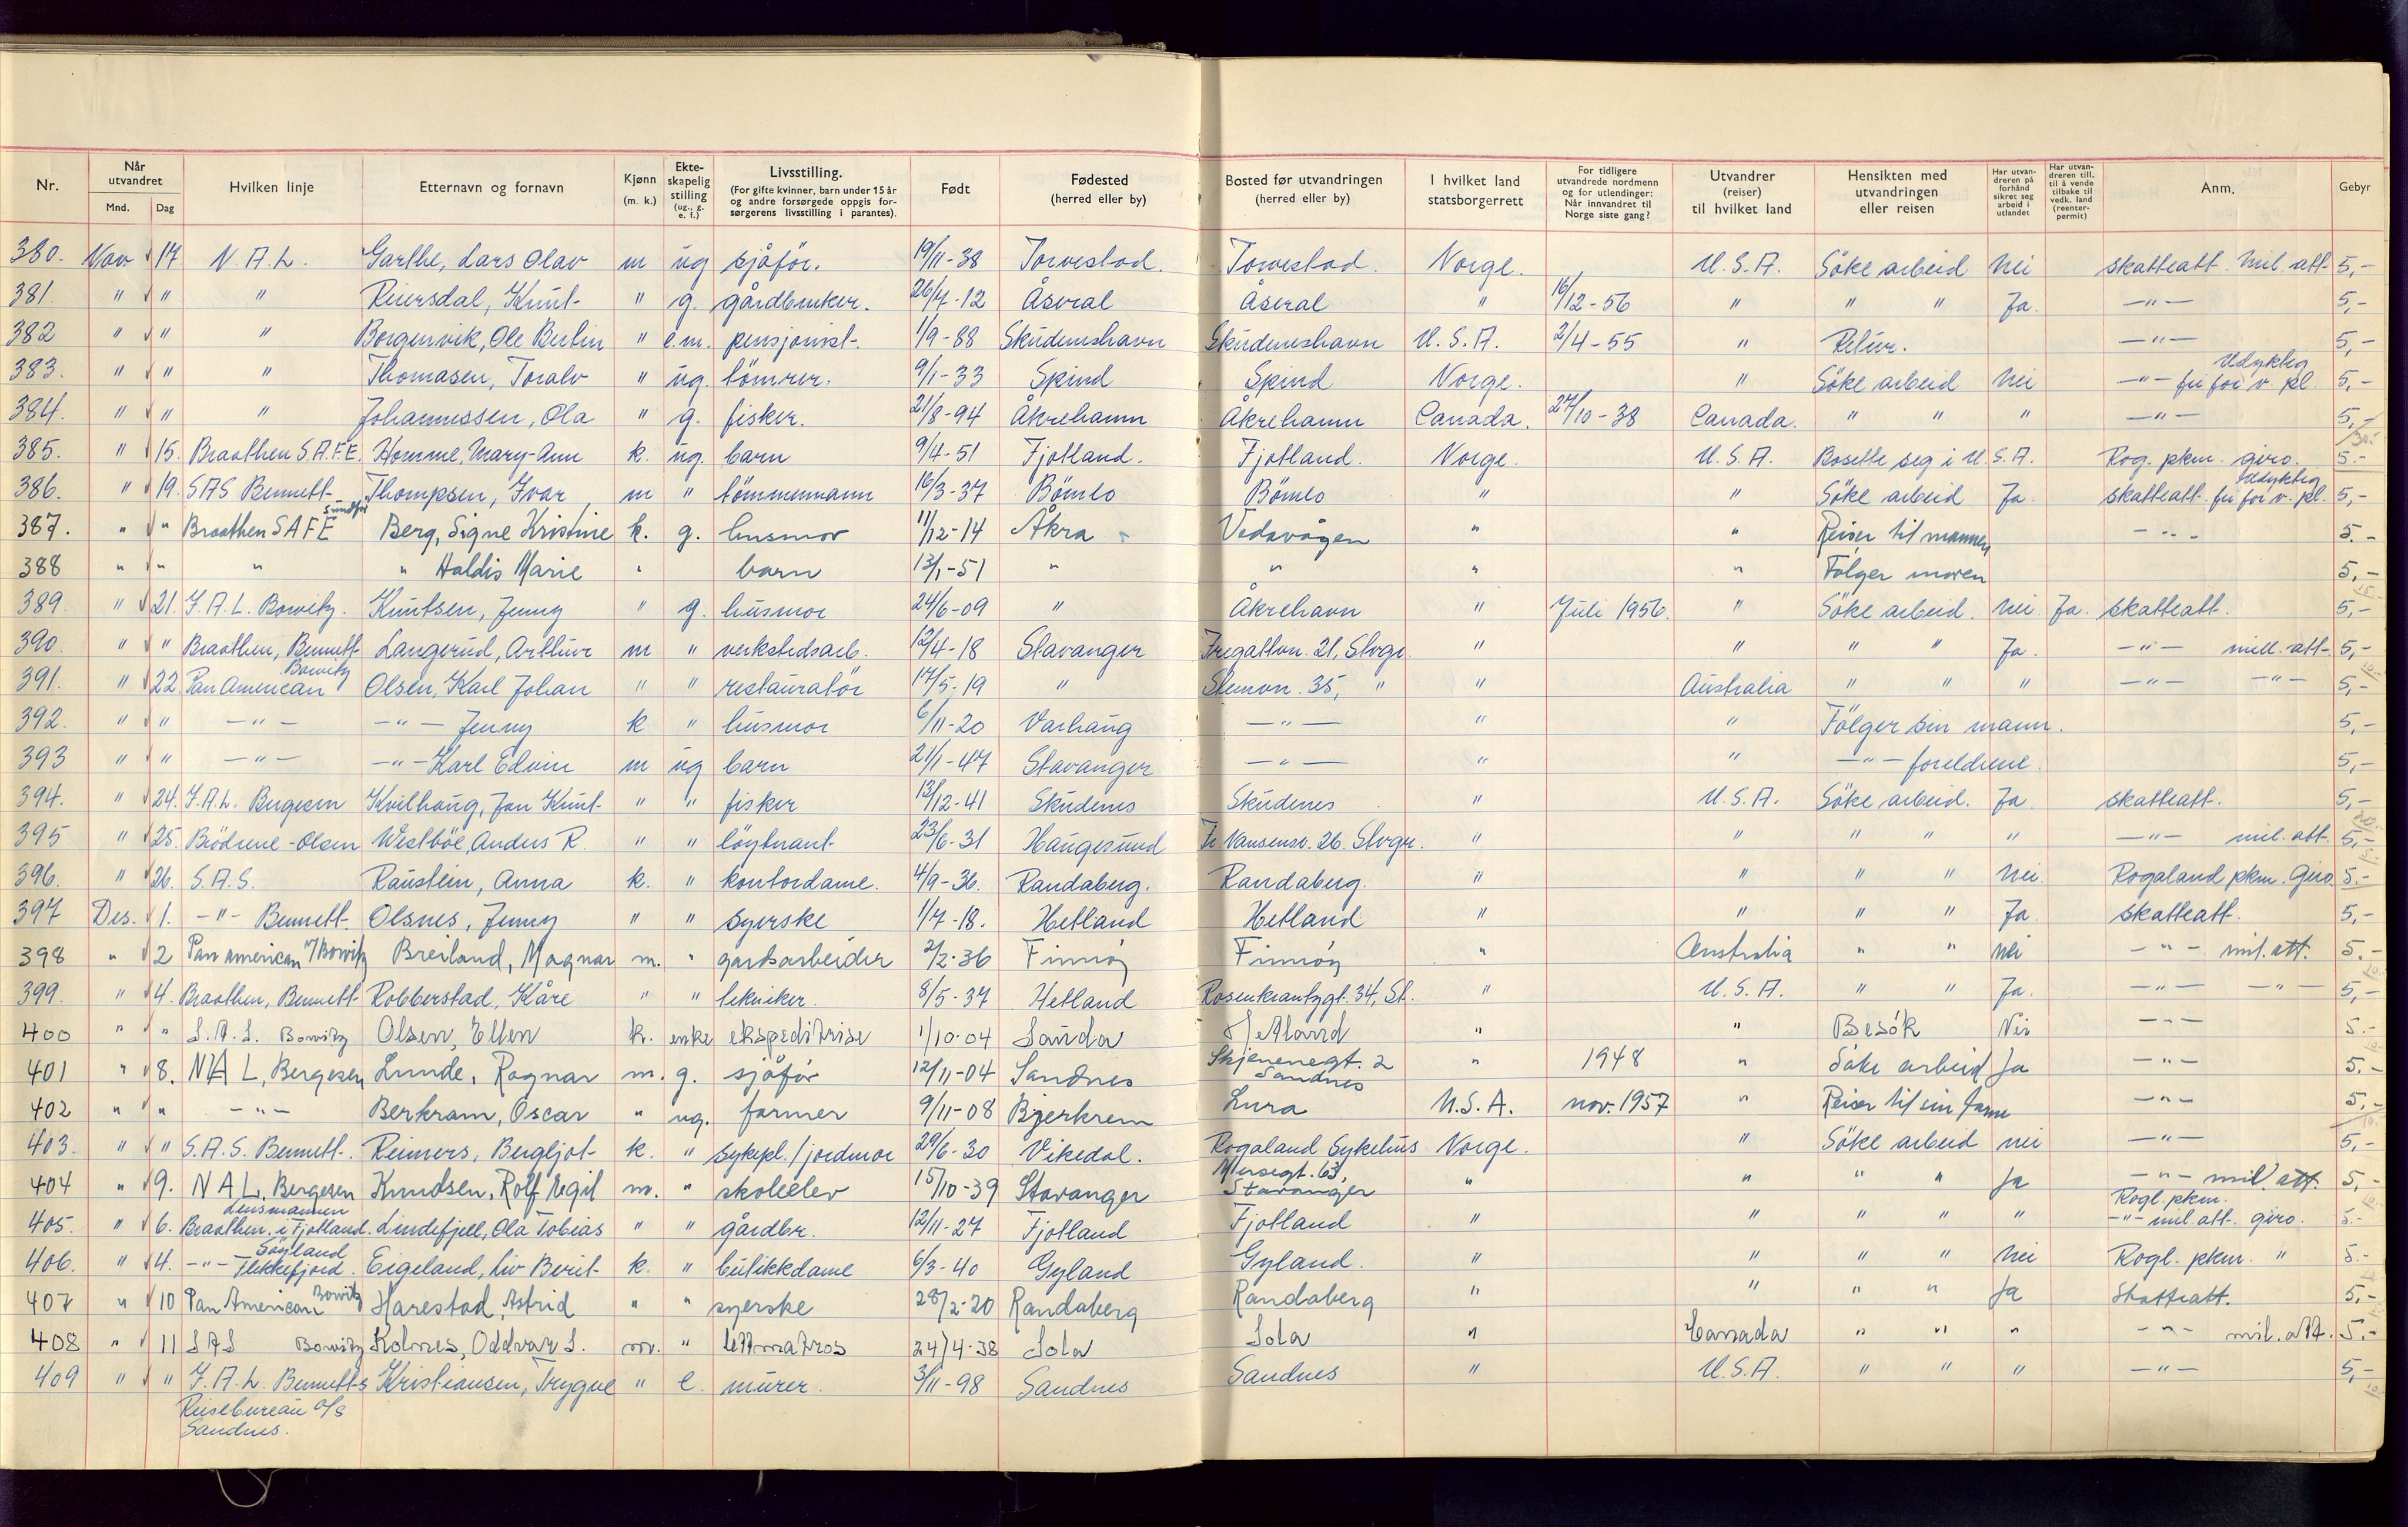 Nr. Når utvandret Mnd. Dag Hvilken linje Etternavn og fornavn Kjønn (m. k.) Ekteskapelig stilling (ug., g. e. f.) Livsstilling. (For gifte kvinner, barn under 15 år og andre forsørgede oppgis forsørgerens livsstilling i parantes). Født Fødested (herred eller by) Bosted før utvandringen (herred eller by) I hvilket land statsborgerrett For tidligere utvandrede nordmenn og for utlendinger: Når innvandret til Norge siste gang? Utvandrer (reiser) til hvilket land Hensikten med utvandringen eller reisen Har utvandreren på forhånd sikret seg arbeid i utlandet Har utvandreren till. til å vende tilbake til vedk. land (reenterpermit) Anm. Gebyr
380. Nov 17 N.A.L. Garthe, Lars Olav m ug sjåför. 19/11-38 Torvestad. Torvestad. Norge. U.S.A. Söke arbeid Nei skatteatt. Mil. att. 5,-
381. " " " Reiersdal, Knut " g. gårdbruker. 26/7-12 Åseral Åseral " 16/12-56 " " " Ja. -"- 5,-
382 " " " Borgenvik, Ole Bertin " e.m. pensjonist. 1/9-88 Skudeneshavn Skudeneshavn U.S.A. 2/4-55 " Retur. -"- 5,-
383. " " " Thomasen, Toralv " ug. tömrer. 9/1-33 Spind Spind Norge. " Söke arbeid Nei -"- fri for v. pl. Utdyktig 5,-
384. " " " Johannessen, Ola " g. fisker. 21/8-94 Åkrehamn Åkrehamn Canada. 27/10-38 Canada. " " " -"- 5,-
385. " 15. Braathen S.A.F.E. Homme, Mary-Ann k. ug. barn 9/4-51 Fjotland. Fjotland. Norge. U.S.A. Bosette seg i U.S.A. Rog. pkm. giro. 5.-
386. " 19. SAS Bennett- Thompsen, Ivar m " tömmermann 16/3-37 Bömlo Bömlo " " Söke arbeid Ja. skatteatt. fri for v. pl. Utdyktig 5,-
387. " " Braathen SAFE Sundfør Berg, Signe Kristine k. g. husmor 11/12-14 Åkra Vedavågen " " Reiser til mannen -"- 5.-
388 " " " " Haldis Marie " barn 13/1-51 " " " " Følger moren 5,-
389. " 21. F.A.L. Bowitz. Knutsen, Jenny " g. husmor 24/6-09 " Åkrehavn " Juli 1956. " Söke arbeid. Nei Ja. skatteatt. 5,-
390. " " Braathen, Bennett Langerud, Arthur m " verkstedsarb. 12/4-18 Stavanger Fregattvn. 21, Stvgr. " " " " Ja. -"- mill. att. 5,-
391. " 22. Pan American Bowitz Olsen, Karl Johan " " restauratör 17/5-19 " Slemvn. 35, " " Australia " " " -"- -"- 5,-
392. " " -"- -"- Jenny k " husmor 6/11-20 Varhaug -"- " " Fölger sin mann. 5,-
393 " " -"- -"- Karl Edvin m ug barn 21/1-47 Stavanger -"- " " -"- foreldrene. 5,-
394. " 24. F.A.L. Bergesen Kvilhaug, Jan Knut " " fisker 13/12-41 Skudenes Skudenes " U.S.A. Söke arbeid. Ja. skatteatt. 5,-
395 " 25. Brödrene-Olsen Westböe, Anders R. " " löytnant 23/6-31 Haugesund Fr. Vansensv. 26. Stvgr. " " " " " -"- mil. att. 5,-
396. " 26. S.A.S. Raustein, Anna k. " kontordame. 4/9-36. Randaberg. Randaberg. " " " " Nei. Rogaland pkm. Giro 5.-
397 Des. 1. -"- Bennett. Olsnes, Jenny " " syerske 1/7-18. Hetland Hetland " " " " Ja skatteatt. 5,-
398 " 2 Pan american m/Bowitz Breiland, Magnar m. " gardsarbeider 2/2-36 Finnöy Finnöy " Australia " " Nei -"- mil. att. 5.-
399. " 4. Braathen, Bennett Robberstad, Kåre " " tekniker. 8/5-37 Hetland Rosenkrantzgt. 34, St. " U.S.A. " " Ja. -"- -"- 5,-
400 " " S.A.S. Bowitz Olsen, Ellen k. enke ekspeditrise 1/10-04 Sauda Hetland " " Besök Nei -"- 5.-
401 " 8. NAL, Bergesen Lunde, Ragnar m. g. sjåför 12/11-04 Sandnes Skjenenegt. 2 Sandnes " 1948 " Söke arbeid Ja -"- 5.-
402 " " -"- Berkram, Oscar " ug. farmer 9/11-08 Bjerkrem Lura U.S.A. nov. 1957 " Reiser til sin farm -"- 5,-
403. " " S.A.S. Bennett. Reimers, Bergljot k. " sykepl./jordmor 29/6-30 Vikedal. Rogaland Sykehus Norge. " Söke arbeid nei -"- 5,-
404 " 9. NAL, Bergesen Knudsen, Rolf Egil m. " skoleelev 15/10-39 Stavanger Mursegt. 63, Stavanger " " " " Ja -"- mil. att. 5,-
405. " 6. Braathen. Lensmannen i Fjotland. Lindefjell, Ola Tobias " " gårdbr. 12/11-27 Fjotland Fjotland " " " " " Rogl. pkm. -"- mil. att. giro. 5.-
406. " 4. -"- Söyland Flekkefjord. Eigeland, Liv Berit k. " butikkdame 6/3-40 Gyland Gyland. " " " " Nei Rogl. pkm. " 5.-
407 " 10 Pan American Bowitz Harestad, Astrid " " syerske 28/2-20 Randaberg Randaberg " " " " Ja Skatteatt. 5,-
408 " 11 SAS Bowitz Kolnes, Oddvar S. m. " lettmatros 24/4-38 Sola Sola " Canada " " " -"- mil. att. 5.-
409 " " F.A.L. Bennetts Kristiansen, Trygve " e. murer. 3/11-98 Sandnes Sandnes " U.S.A. " " " -"- 5,-
Reisebureau a/s
Sandnes.